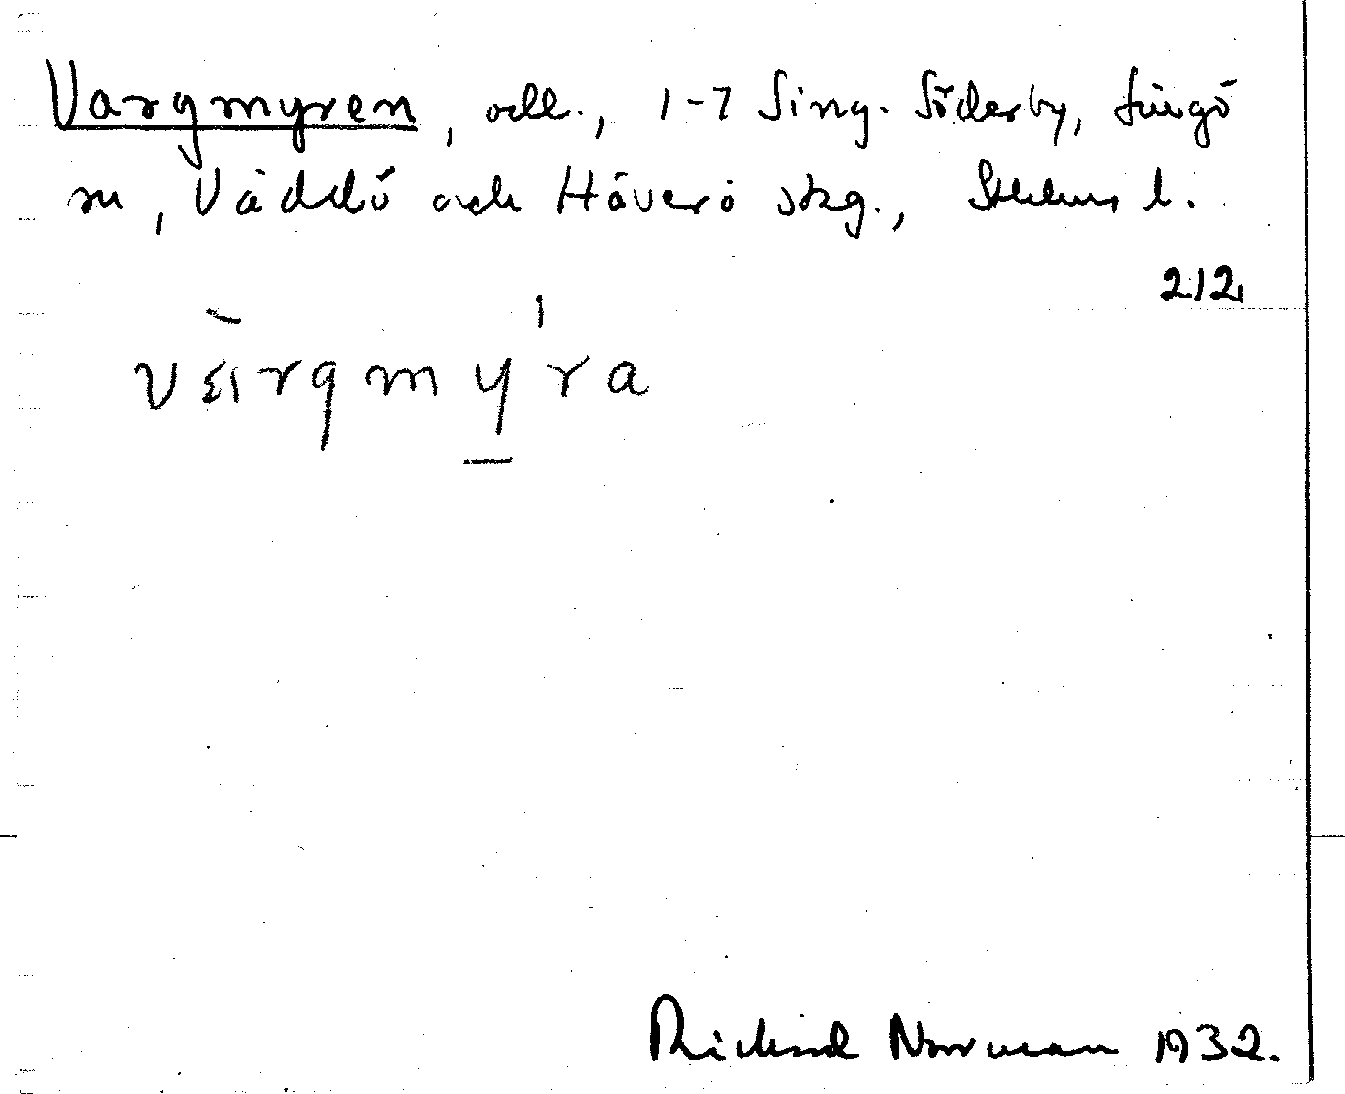 Vargmyren, odl., 1-7 Sing-Söderby, Singö
sn, Väddö och Häverö skg., Sthlms l.
212
värgmy̲ra
Rickard Norman 1932.